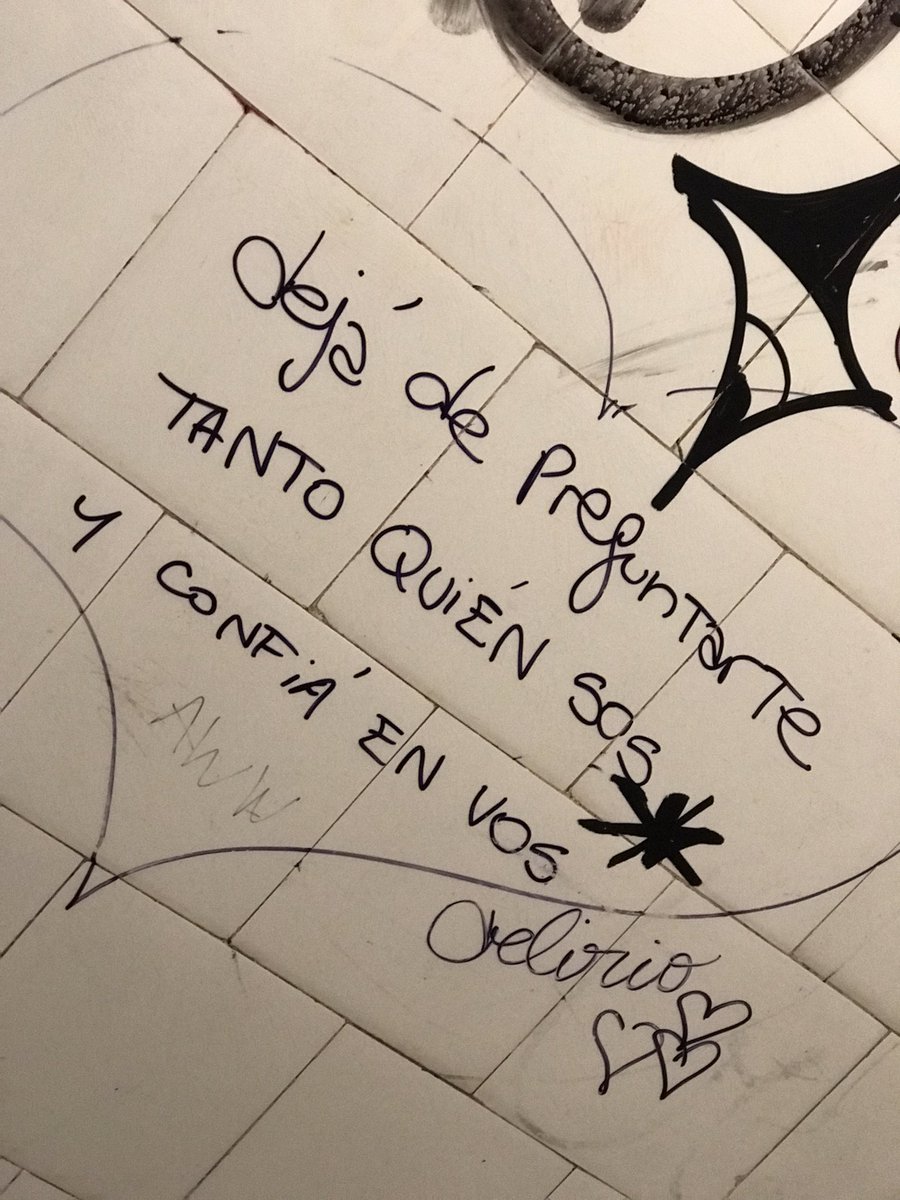 dejá de PreguntarTe
TANTO QUIÉN SOS
Y CONFIÁ EN VOS
delirio